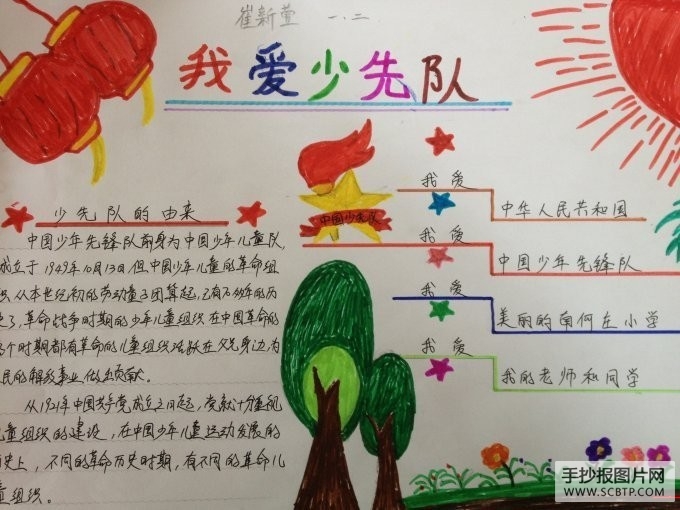 崔新萱 一.二
我爱少先队
少先队的由来
中国少年先锋队前身为中国少年儿童队,
成立于1949年10月13日但中国少年儿童的革命组
织从本世纪初的劳动童子团算起,已有
了,革命战争时期的少年儿童组织在中国革命的
个时期都有革命的儿童组织活跃在父兄身边为
民的解放事业做出贡献。
从1921年中国共产党成立之日起,党就十分重视
儿童组织的建设,在中国少年儿童运动发展的
历史上,不同的革命历史时期,有不同的革命儿
童组织。
中国少先队
我爱
中华人民共和国
我爱
中国少年先锋队
我爱
美丽的南何庄小学
我爱
我的老师和同学
手抄报图片网
WWW.SCBTP.COM